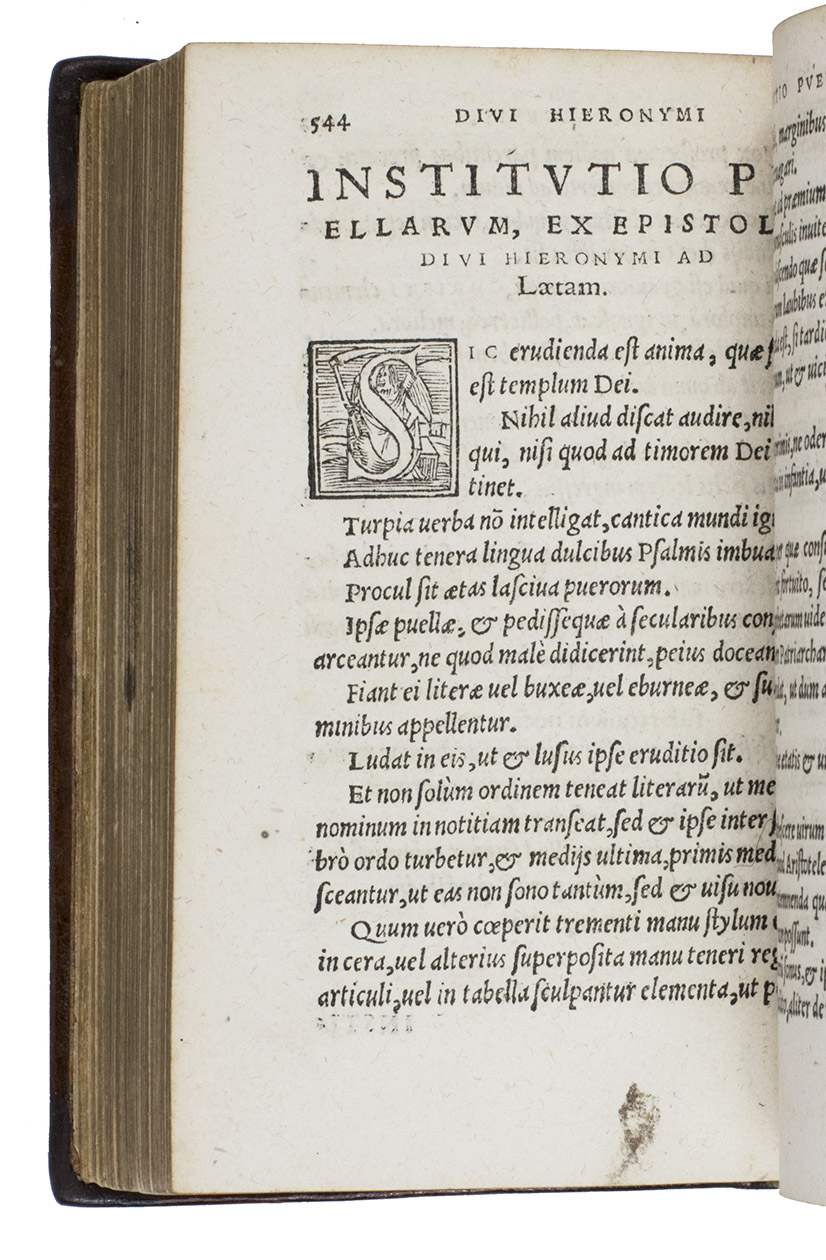 544 DIVI HIERONYMI
INSTITVTIO P
ELLARVM, EX EPISTOL
DIVI HIERONYMI AD
Lætam.
SIC erudienda eſt anima, quæ
eſt templum Dei.
Nihil aliud diſcat audire, nil
qui, niſi quod ad timorem Dei
tinet.
Turpia uerba nō intelligat, cantica mundi ig
Adhuc tenera lingua dulcibus Pſalmis imbua
Procul ſit ætas laſciua puerorum.
Ipſæ puellæ, & pediſſequæ à ſecularibus con
arceantur, ne quod malè didicerint, peius docean
Fiant ei literæ uel buxeæ, uel eburneæ, & ſu
minibus appellentur.
Ludat in eis, ut & luſus ipſe eruditio ſit.
Et non ſolùm ordinem teneat literarū, ut me
nominum in notitiam tranſeat, ſed & ipſe inter
brò ordo turbetur, & medijs ultima, primis med
ſceantur, ut eas non ſono tantùm, ſed & uiſu nou
Quum uerò cœperit trementi manu ſtylum
in cera, uel alterius ſuperpoſita manu teneri reg
articuli, uel in tabella ſculpantur elementa, ut p
TIO PVE
marginibus
ugari.
præmium
inuite
quæ
laudibus
ſi tardi
ut &
ne oder
infantia, u
que conſi
fortuito, ſe
uide
Patriarchar
ut dum
& u
uirum
Ariſtotele
qu
poſſunt.
& ip
aliter de